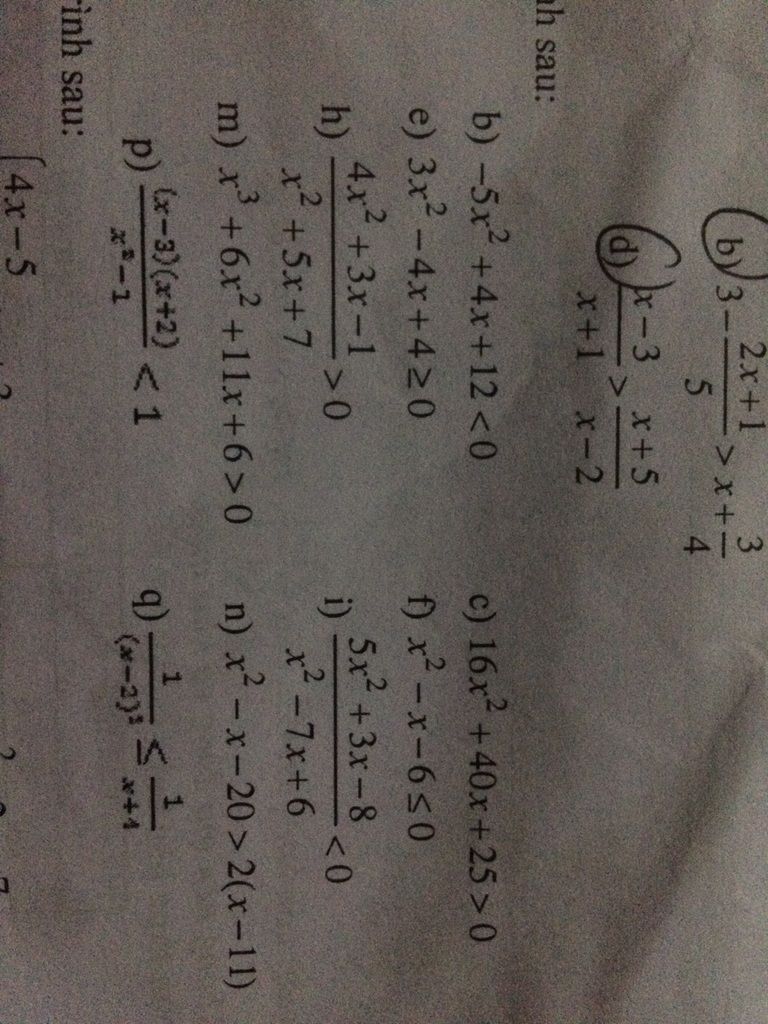 b) 3 - \frac{2x+1}{5} > x + \frac{3}{4}
d) \frac{x-3}{x+1} > \frac{x+5}{x-2}
sau:
b) -5x² + 4x + 12 < 0 c) 16x² + 40x + 25 > 0
e) 3x² - 4x + 4 ≥ 0 f) x² - x - 6 ≤ 0
h) \frac{4x² + 3x - 1}{x² + 5x + 7} > 0 i) \frac{5x² + 3x - 8}{x² - 7x + 6} < 0
m) x³ + 6x² + 11x + 6 > 0 n) x² - x - 20 > 2(x - 11)
p) \frac{(x-3)(x+2)}{x²-1} < 1 q) \frac{1}{(x-2)²} ≤ \frac{1}{x+4}
sau:
4x - 5